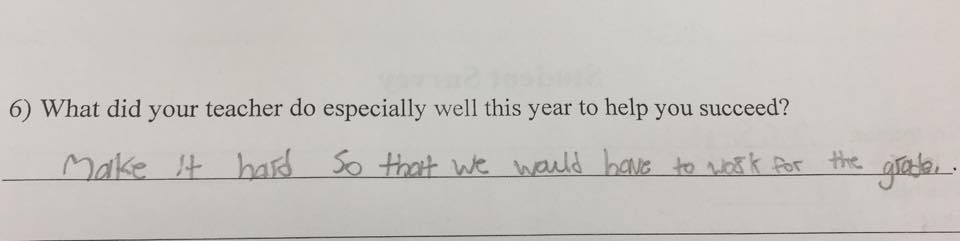 Student Survey
6) What did your teacher do especially well this year to help you succeed?
Make it hard so that we would have to work for the grade.